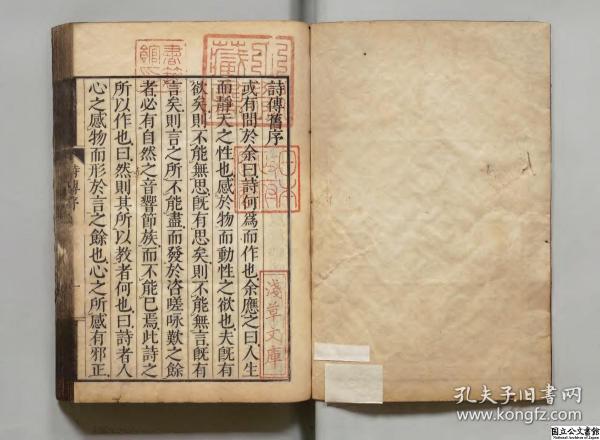 詩傳舊序
或有問於余曰詩何爲而作也余應之曰人生
而靜天之性也感於物而動性之欲也夫旣有
欲矣則不能無思旣有思矣則不能無言旣有
言矣則言之所不能盡而發於咨嗟咏歎之餘
者必有自然之音響節族而不能已焉此詩之
所以作也曰然則其所以教者何也曰詩者人
心之感物而形於言之餘也心之所感有邪正
詩傳序
淺草文庫
日本
孔夫子旧书网
www.kongfz.com
国立公文書館
National Archives of Japan